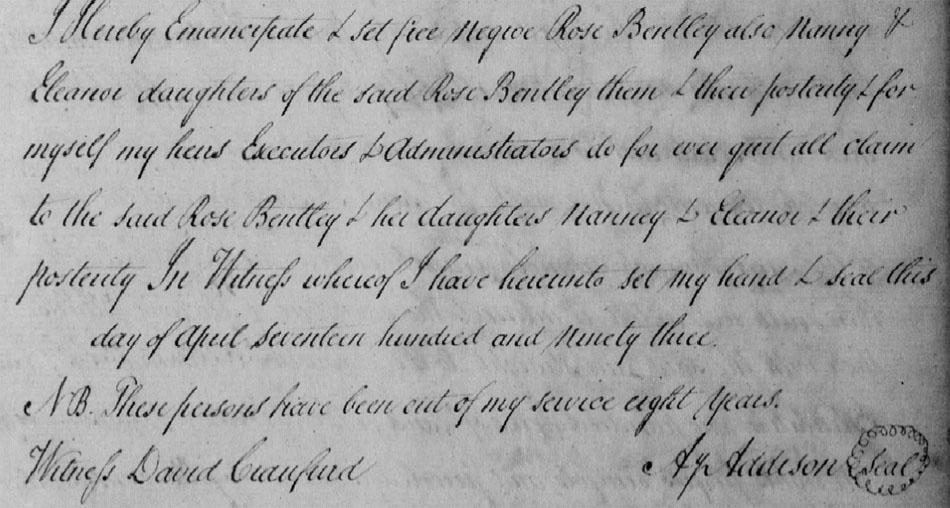 I Hereby Emancipate & set free Negroe Rose Bentley also Nanny &
Eleanor daughters of the said Rose Bentley them & their posterity & for
myself my heirs Executors & Administrators do for ever quit all claim
to the said Rose Bentley & her daughters Nanney & Eleanor & their
posterity In Witness whereof I have hereunto set my hand & seal this
day of April seventeen hundred and Ninety three.
NB. These persons have been out of my service eight years.
Witness David Craufurd
Addison Seal